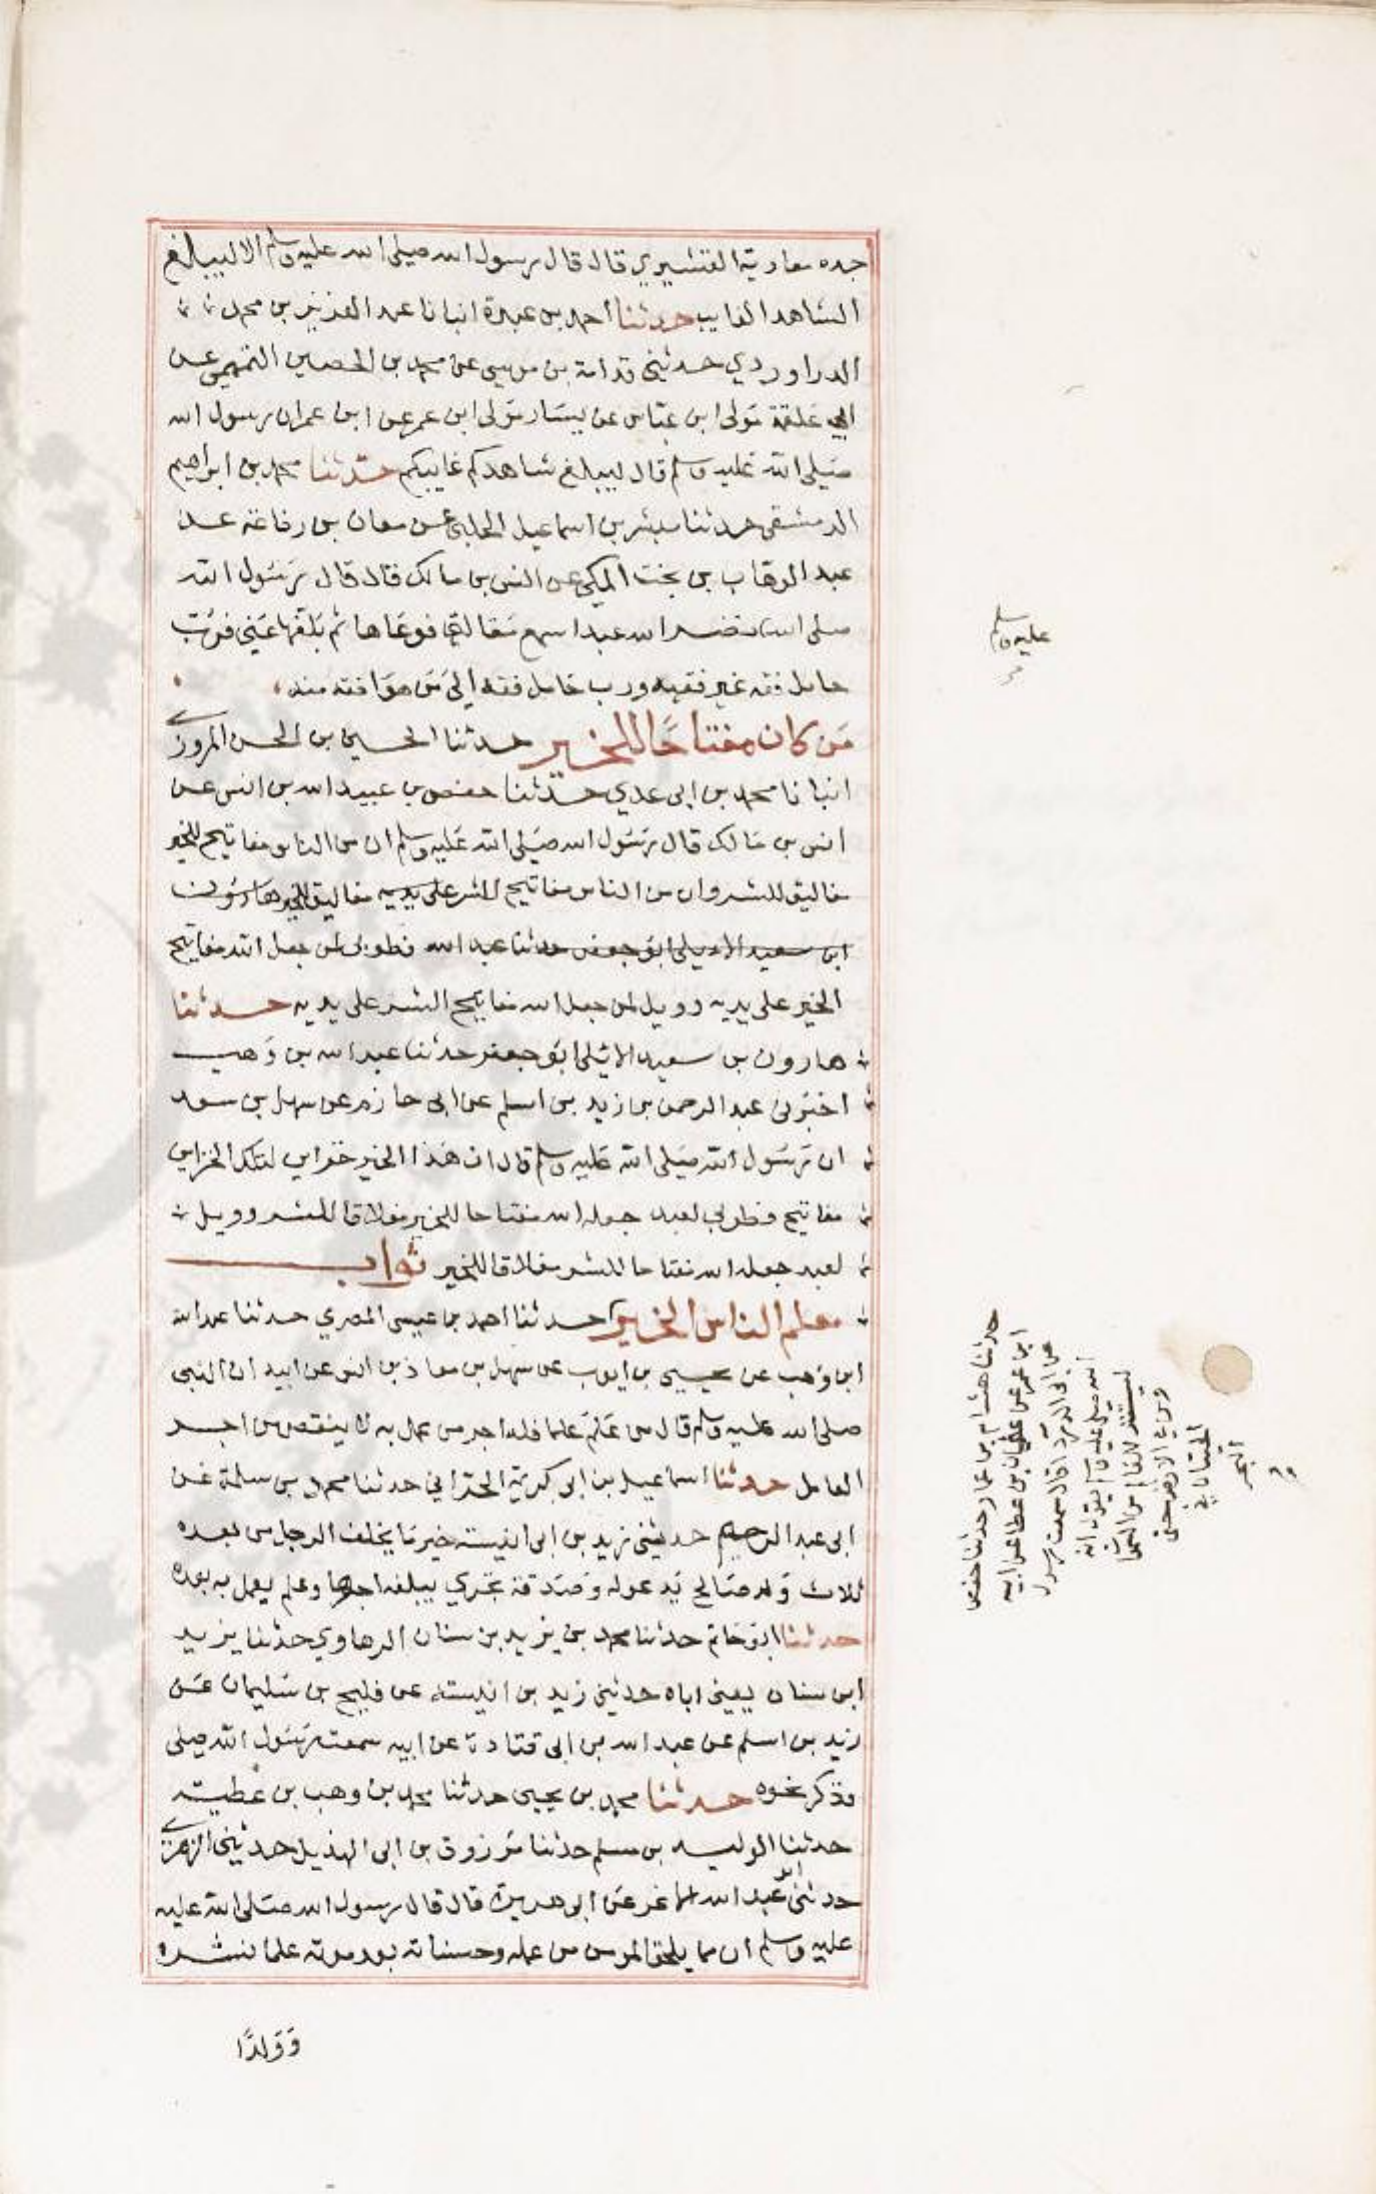 جده معاوية القشيري قال قال رسول الله صلى الله عليه وسلم الا ليبلغ
الشاهد الغايب حدثنا احمد بن عبدة انبانا عبد العزيز بن محمد
الدراوردي حدثني قدامة بن موسى عن محمد بن الحصين التميمي عن
ابي علقمة مولى ابن عباس عن يسار مولى ابن عمر عن ابن عمر ان رسول الله
صلى الله عليه وسلم قال ليبلغ شاهدكم غايبكم حدثنا محمد بن ابراهيم
الدمشقي حدثنا مبشر بن اسماعيل الحلبي عن معان بن رفاعة عن
عبد الوهاب بن بخت المكي عن انس بن مالك قال قال رسول الله
صلى الله نضر الله عبدا سمع مقالتي فوعاها ثم بلغها عني فرب
حامل فقه غير فقيه ورب حامل فقه الى من هو افقه منه
من كان مفتاحا للخير حدثنا الحسين بن الحسن المروزي
انبانا محمد بن ابي عدي حدثنا حفص بن عبيد الله بن انس عن
انس بن مالك قال رسول الله صلى الله عليه وسلم ان من الناس مفاتيح للخير
مغاليق للشر وان من الناس مفاتيح للشر على يديه مغاليق للخير هارون
ابن سعيد الايلي ابو جعفر حدثنا عبد الله فطوبى لمن جعل الله مفاتيح
الخير على يديه وويل لمن جعل الله مفاتيح الشر على يديه حدثنا
هارون بن سعيد الايلي ابو جعفر حدثنا عبد الله بن وهب
اخبرني عبد الرحمن بن زيد بن اسلم عن ابي حازم عن سهل بن سعد
ان رسول الله صلى الله عليه وسلم قال ان هذا الخير خزاين لتلك الخزاين
مفاتيح فطوبى لعبد جعله الله مفتاحا للخير مغلاقا للشر وويل
لعبد جعله الله مفتاحا للشر مغلاقا للخير ثواب
معلم الناس الخير حدثنا احمد بن عيسى المصري حدثنا عبد الله
ابن وهب عن يحيى بن ايوب عن سهل بن معاذ بن انس عن ابيه ان النبي
صلى الله عليه وسلم قال من علم علما فله اجر من عمل به لا ينقص من اجر
العامل حدثنا اسماعيل بن ابي كريمة الحراني حدثنا محمد بن سلمة عن
ابي عبد الرحيم حدثني زيد بن ابي انيسة خير ما يخلف الرجل من بعده
ثلاث ولد صالح يدعو له وصدقة تجري يبلغه اجرها وعلم يعمل به بعده
حدثنا ابو حاتم حدثنا محمد بن يزيد بن سنان الرهاوي حدثنا يزيد
ابن سنان يعني اباه حدثني زيد بن انيسة عن فليح بن سليمان عن
زيد بن اسلم عن عبد الله بن ابي قتادة عن ابيه سمعت رسول الله صلى
فذكر نحوه حدثنا محمد بن يحيى حدثنا محمد بن وهب بن عطية
حدثنا الوليد بن مسلم حدثنا مرزوق بن ابي الهذيل حدثني الزهري
حدثني ابو عبد الله الاغر عن ابي هريرة قال قال رسول الله صلى الله عليه
عليه وسلم ان مما يلحق المومن من عمله وحسناته بعد موته علما نشره
وولدا
عليه وسلم
حدثنا هشام بن عمار حدثنا حفص
ابن عمر عن عثمان بن عطا عن ابيه
عن ابي الدردا قال سمعت رسول
الله صلى الله عليه وسلم يقول انه
ليستغفر للعالم من في السما
ومن في الارض حتى
الحيتان في
البحر